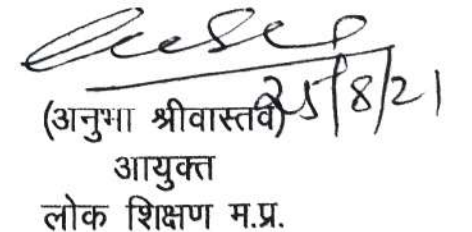 25/8/21
(अनुभा श्रीवास्तव)
आयुक्त
लोक शिक्षण म.प्र.